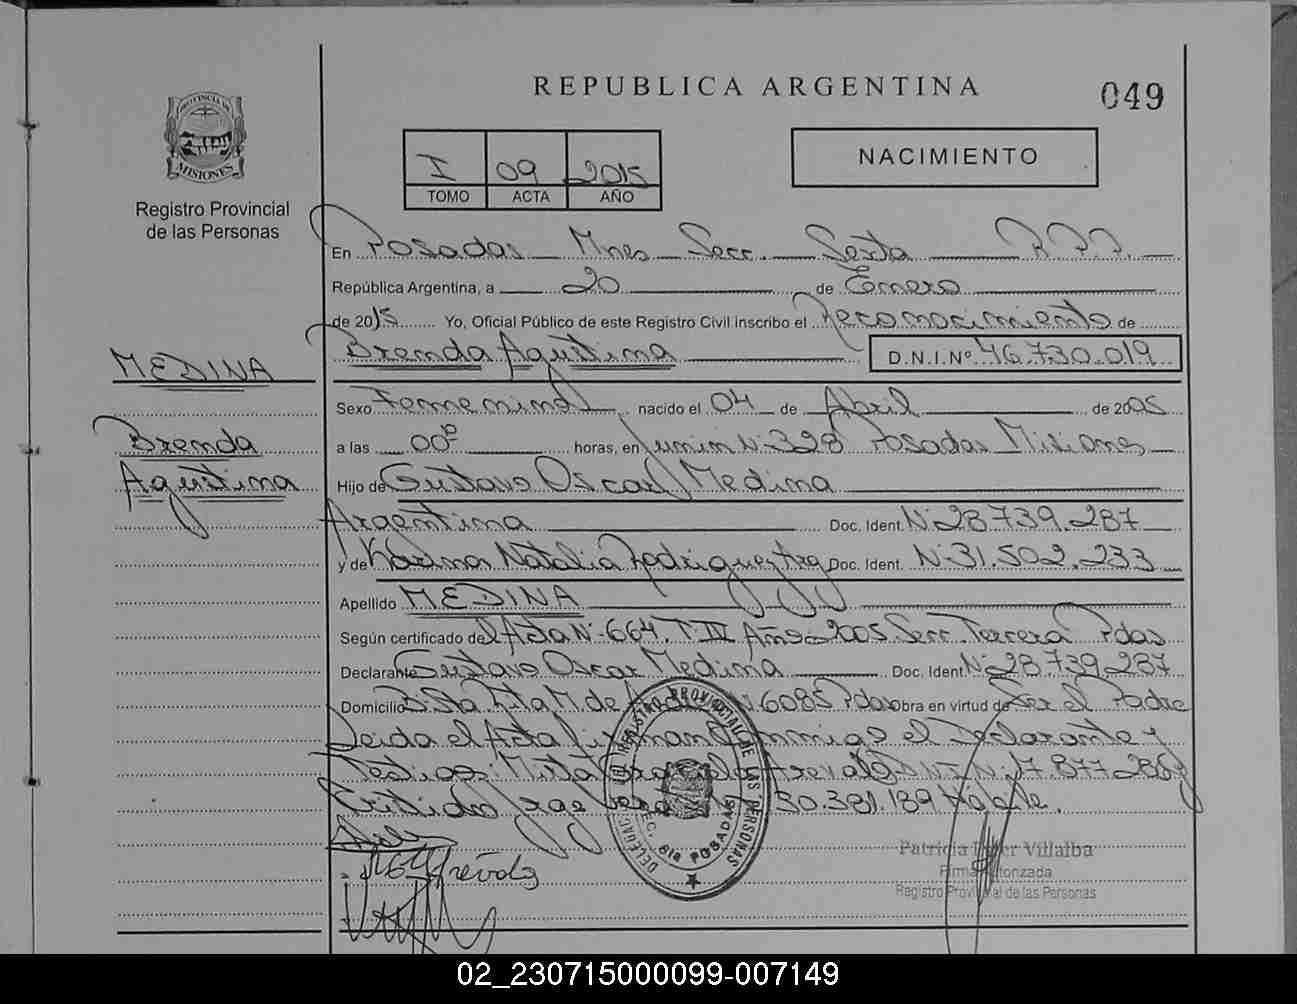 REPUBLICA ARGENTINA
049
PROVINCIA DE
MISIONES
Registro Provincial
de las Personas
I 09 2015
TOMO ACTA AÑO
NACIMIENTO
En Posadas Mnes Secc. Sexta R.P.P.
República Argentina, a 20 de Enero
de 2015 Yo, Oficial Público de este Registro Civil inscribo el Reconocimiento de
Brenda Agustina D.N.I.Nº 46.730.019
MEDINA
Brenda
Agustina
Sexo Femenino nacido el 04 de Abril de 2005
a las 00 horas, en Junin Nº 328 Posadas Misiones
Hijo de Gustavo Oscar Medina
Argentina Doc. Ident. Nº 28.739.287
y de Karina Natalia Rodriguez Arg Doc. Ident. Nº 31.502.233
Apellido MEDINA
Según certificado del Acta Nº 664. T. III Año 2005 Secc. Tercera Pdas
Declarante Gustavo Oscar Medina Doc. Ident. Nº 28.739.287
Domicilio Rita M. de Nº 6085 Pdas obra en virtud de Ser el Padre
Leida el Acta firman conmigo el Declarante y
Testigos: Mirta Arevalo DNI Nº 17.877.286 y
30.381.189
DELEGAC. DEL REGISTRO PROVINCIAL DE LAS PERSONAS
SEC. 6ta POSADAS
Arévalo
Patricia Villalba
Firma Autorizada
Registro Provincial de las Personas
02_230715000099-007149